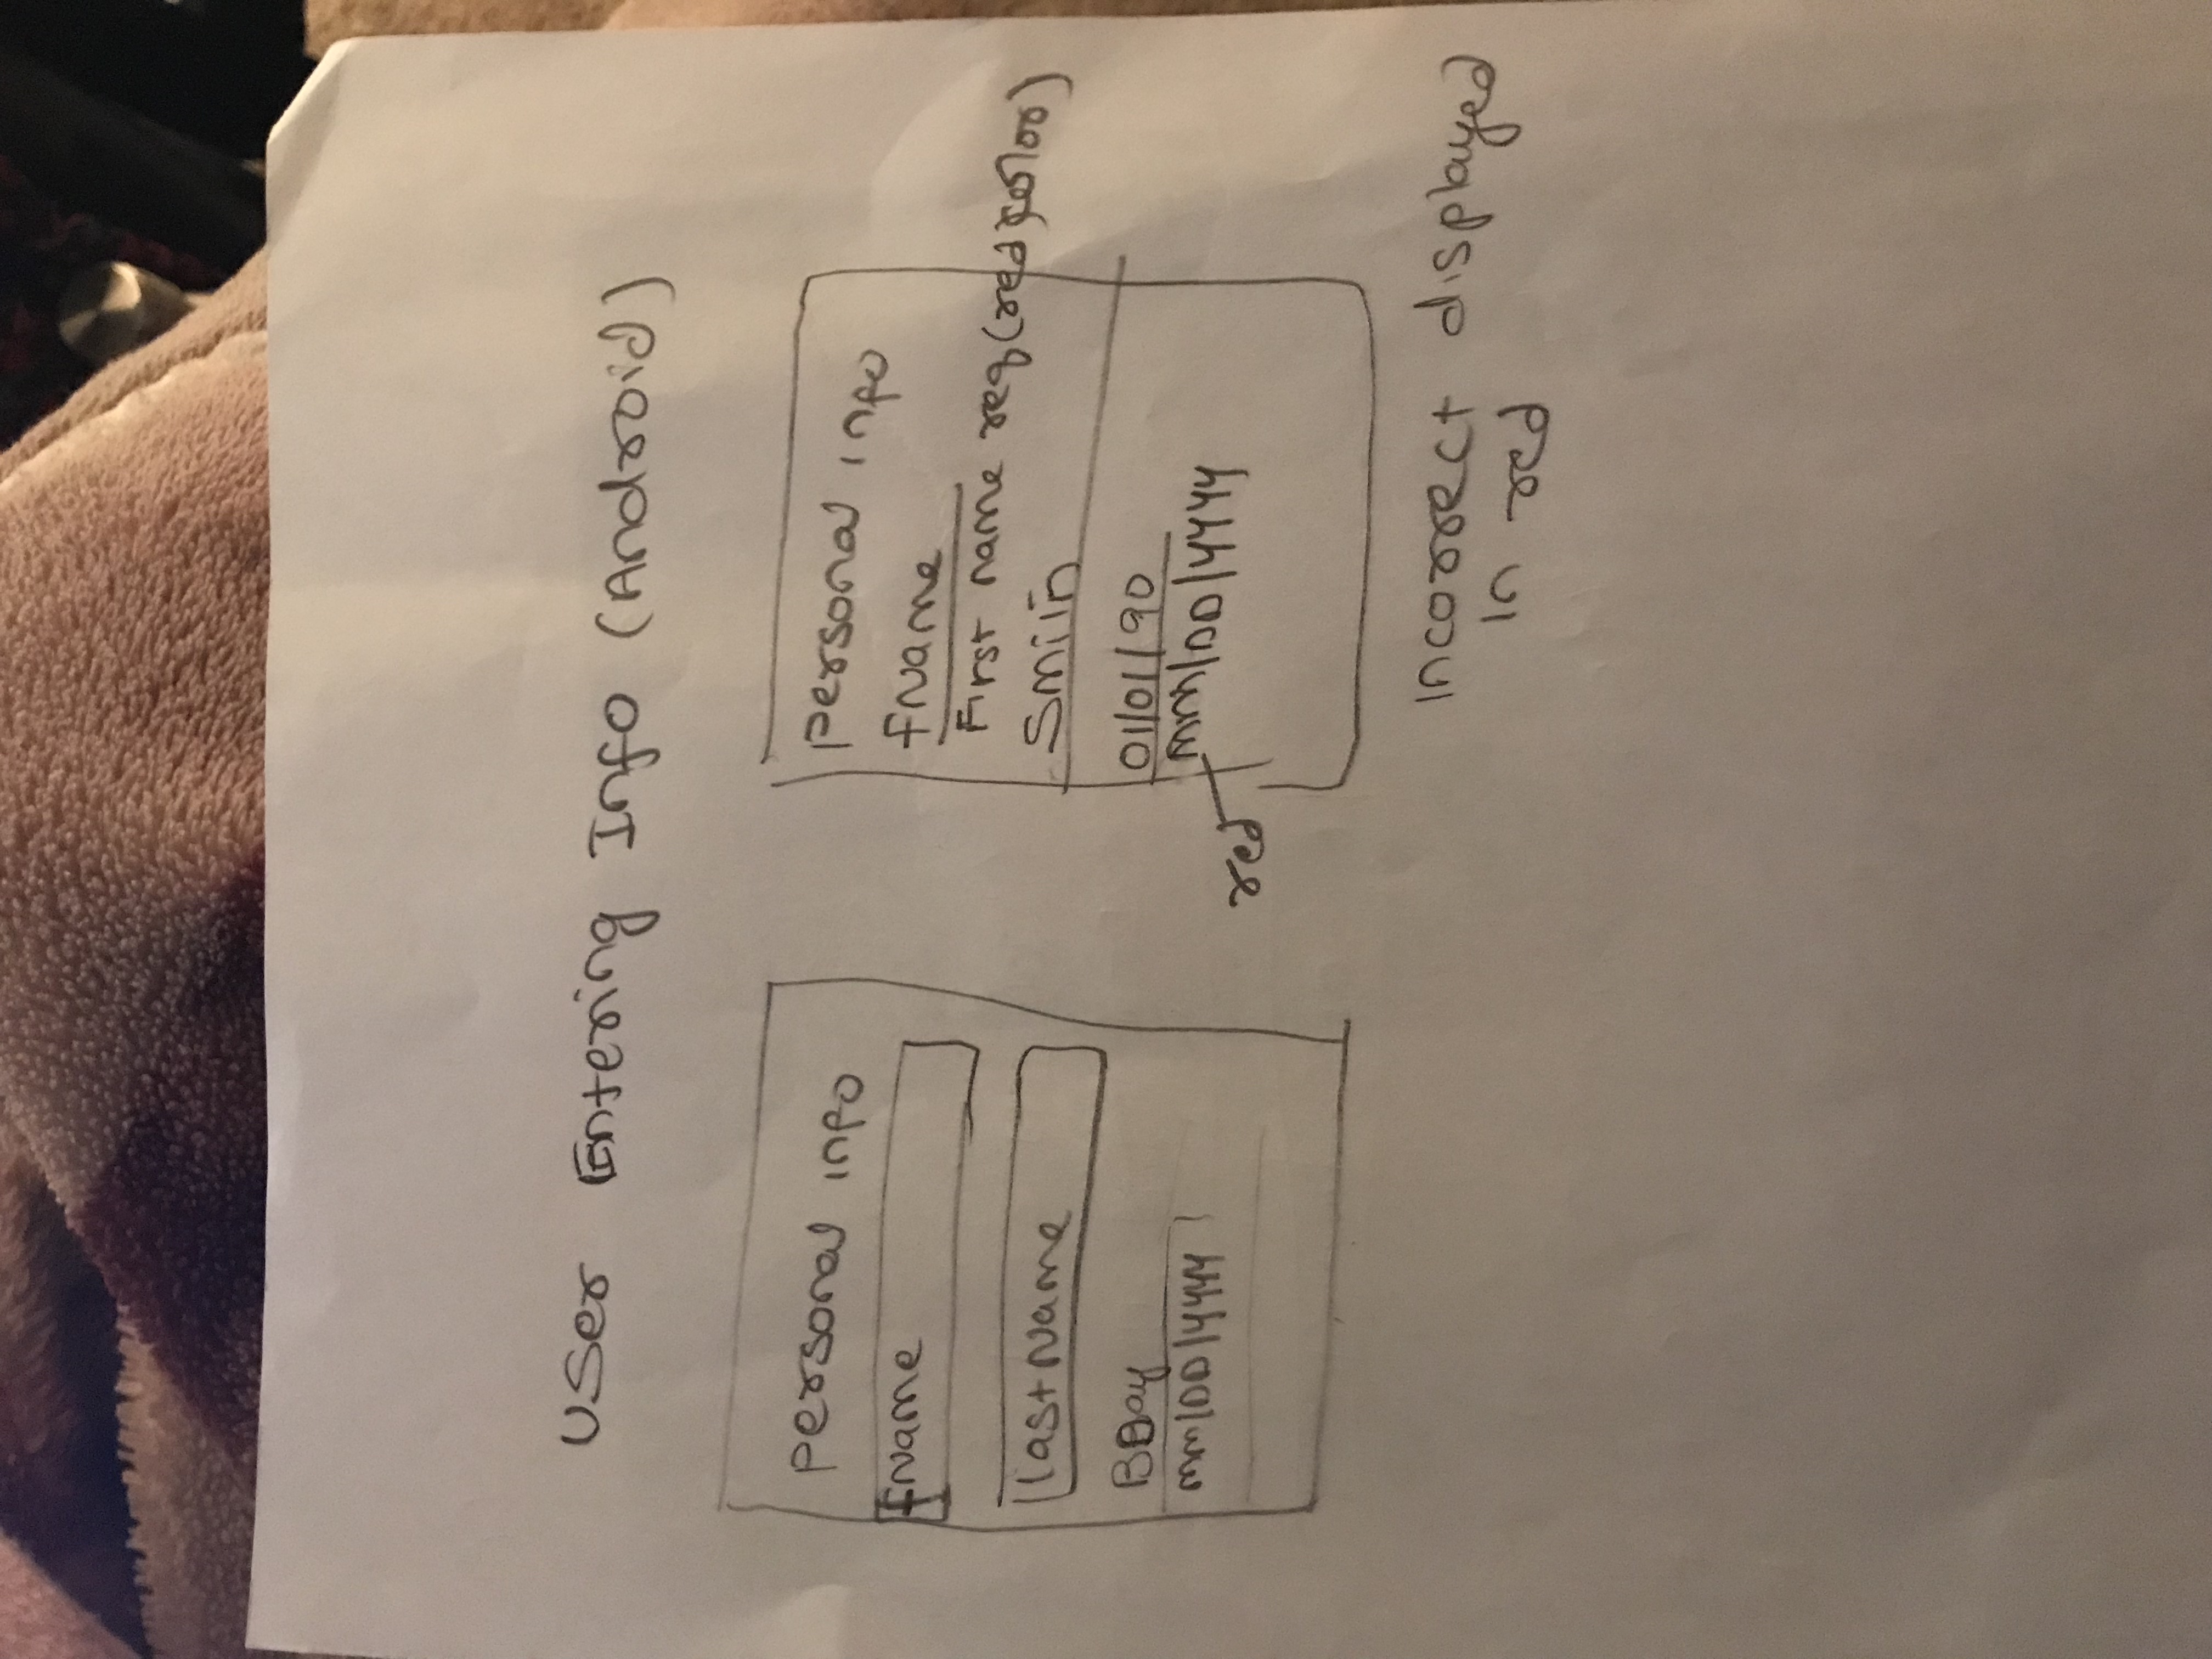 User Entering Info (Android)
personal info
fName
last Name
BDay
mm/DD/YYYY
personal info
fName
First name req (red color)
Smiin
01/01/90
mm/DD/YYYY
red
incorrect displayed
in red